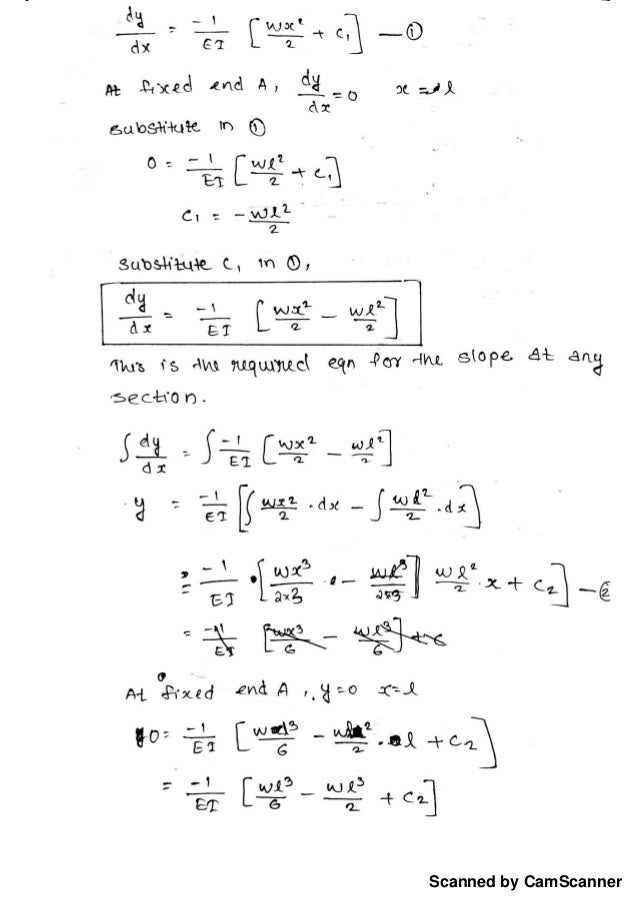 dy/dx = -1/EI [Wx²/2 + C₁] — ①
At fixed end A, dy/dx = 0 x = l
substitute in ①
0 = -1/EI [Wl²/2 + C₁]
C₁ = -Wl²/2
substitute C₁ in ①,
dy/dx = -1/EI [Wx²/2 - Wl²/2]
This is the required eqn for the slope at any
section.
∫ dy/dx = ∫ -1/EI [Wx²/2 - Wl²/2]
y = -1/EI [∫ Wx²/2 . dx - ∫ Wl²/2 . dx]
= -1/EI [Wx³/2×3 - Wl²/2 . x + C₂] — ②
= -1/EI [Wx³/6 - Wl³/6] + C
At fixed end A, y=0 x=l
0 = -1/EI [Wl³/6 - Wl²/2 . l + C₂]
= -1/EI [Wl³/6 - Wl³/2 + C₂]
Scanned by CamScanner